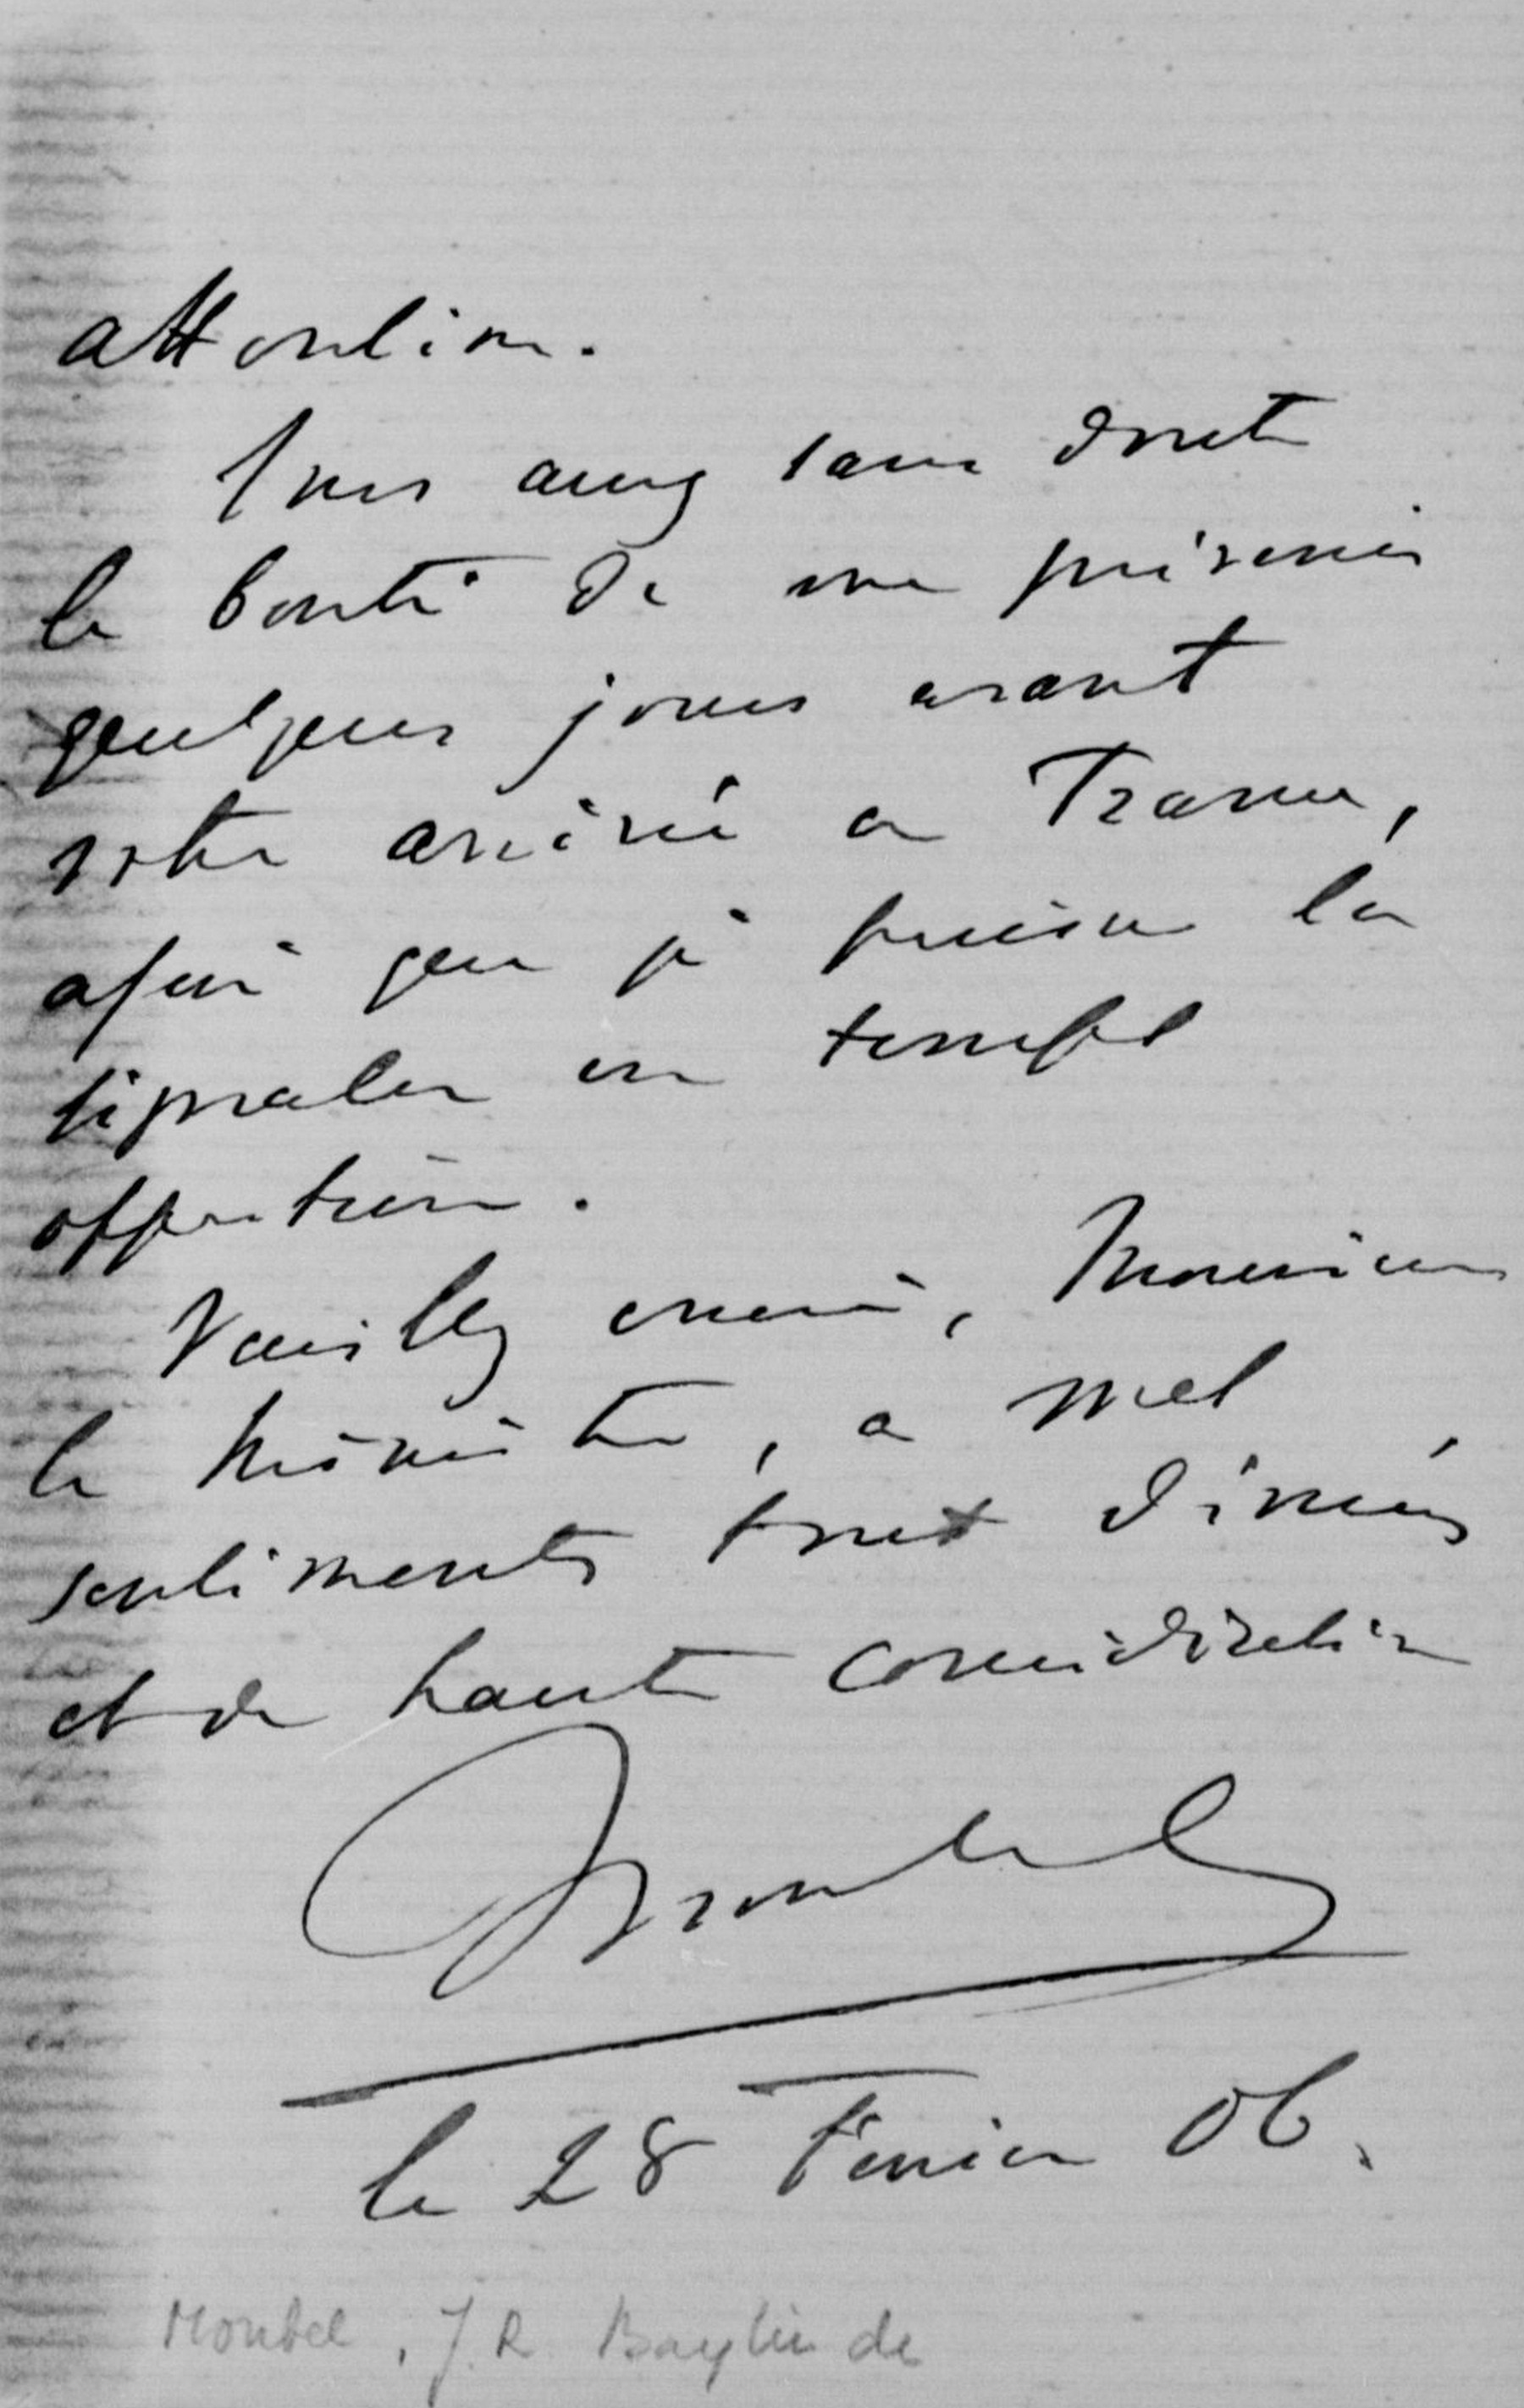 attention.
Vous aurez sans doute
la bonté de me prévenir
quelques jours avant
votre arrivée a
afin que je puisse la
signaler en temps
opportun.
Veuillez croire, Monsieur
le Ministre, a mes
sentiments tout dévoués
et de haute considération
Monbel
le 28 Février 06.
Monbel, J. R. Baylin de